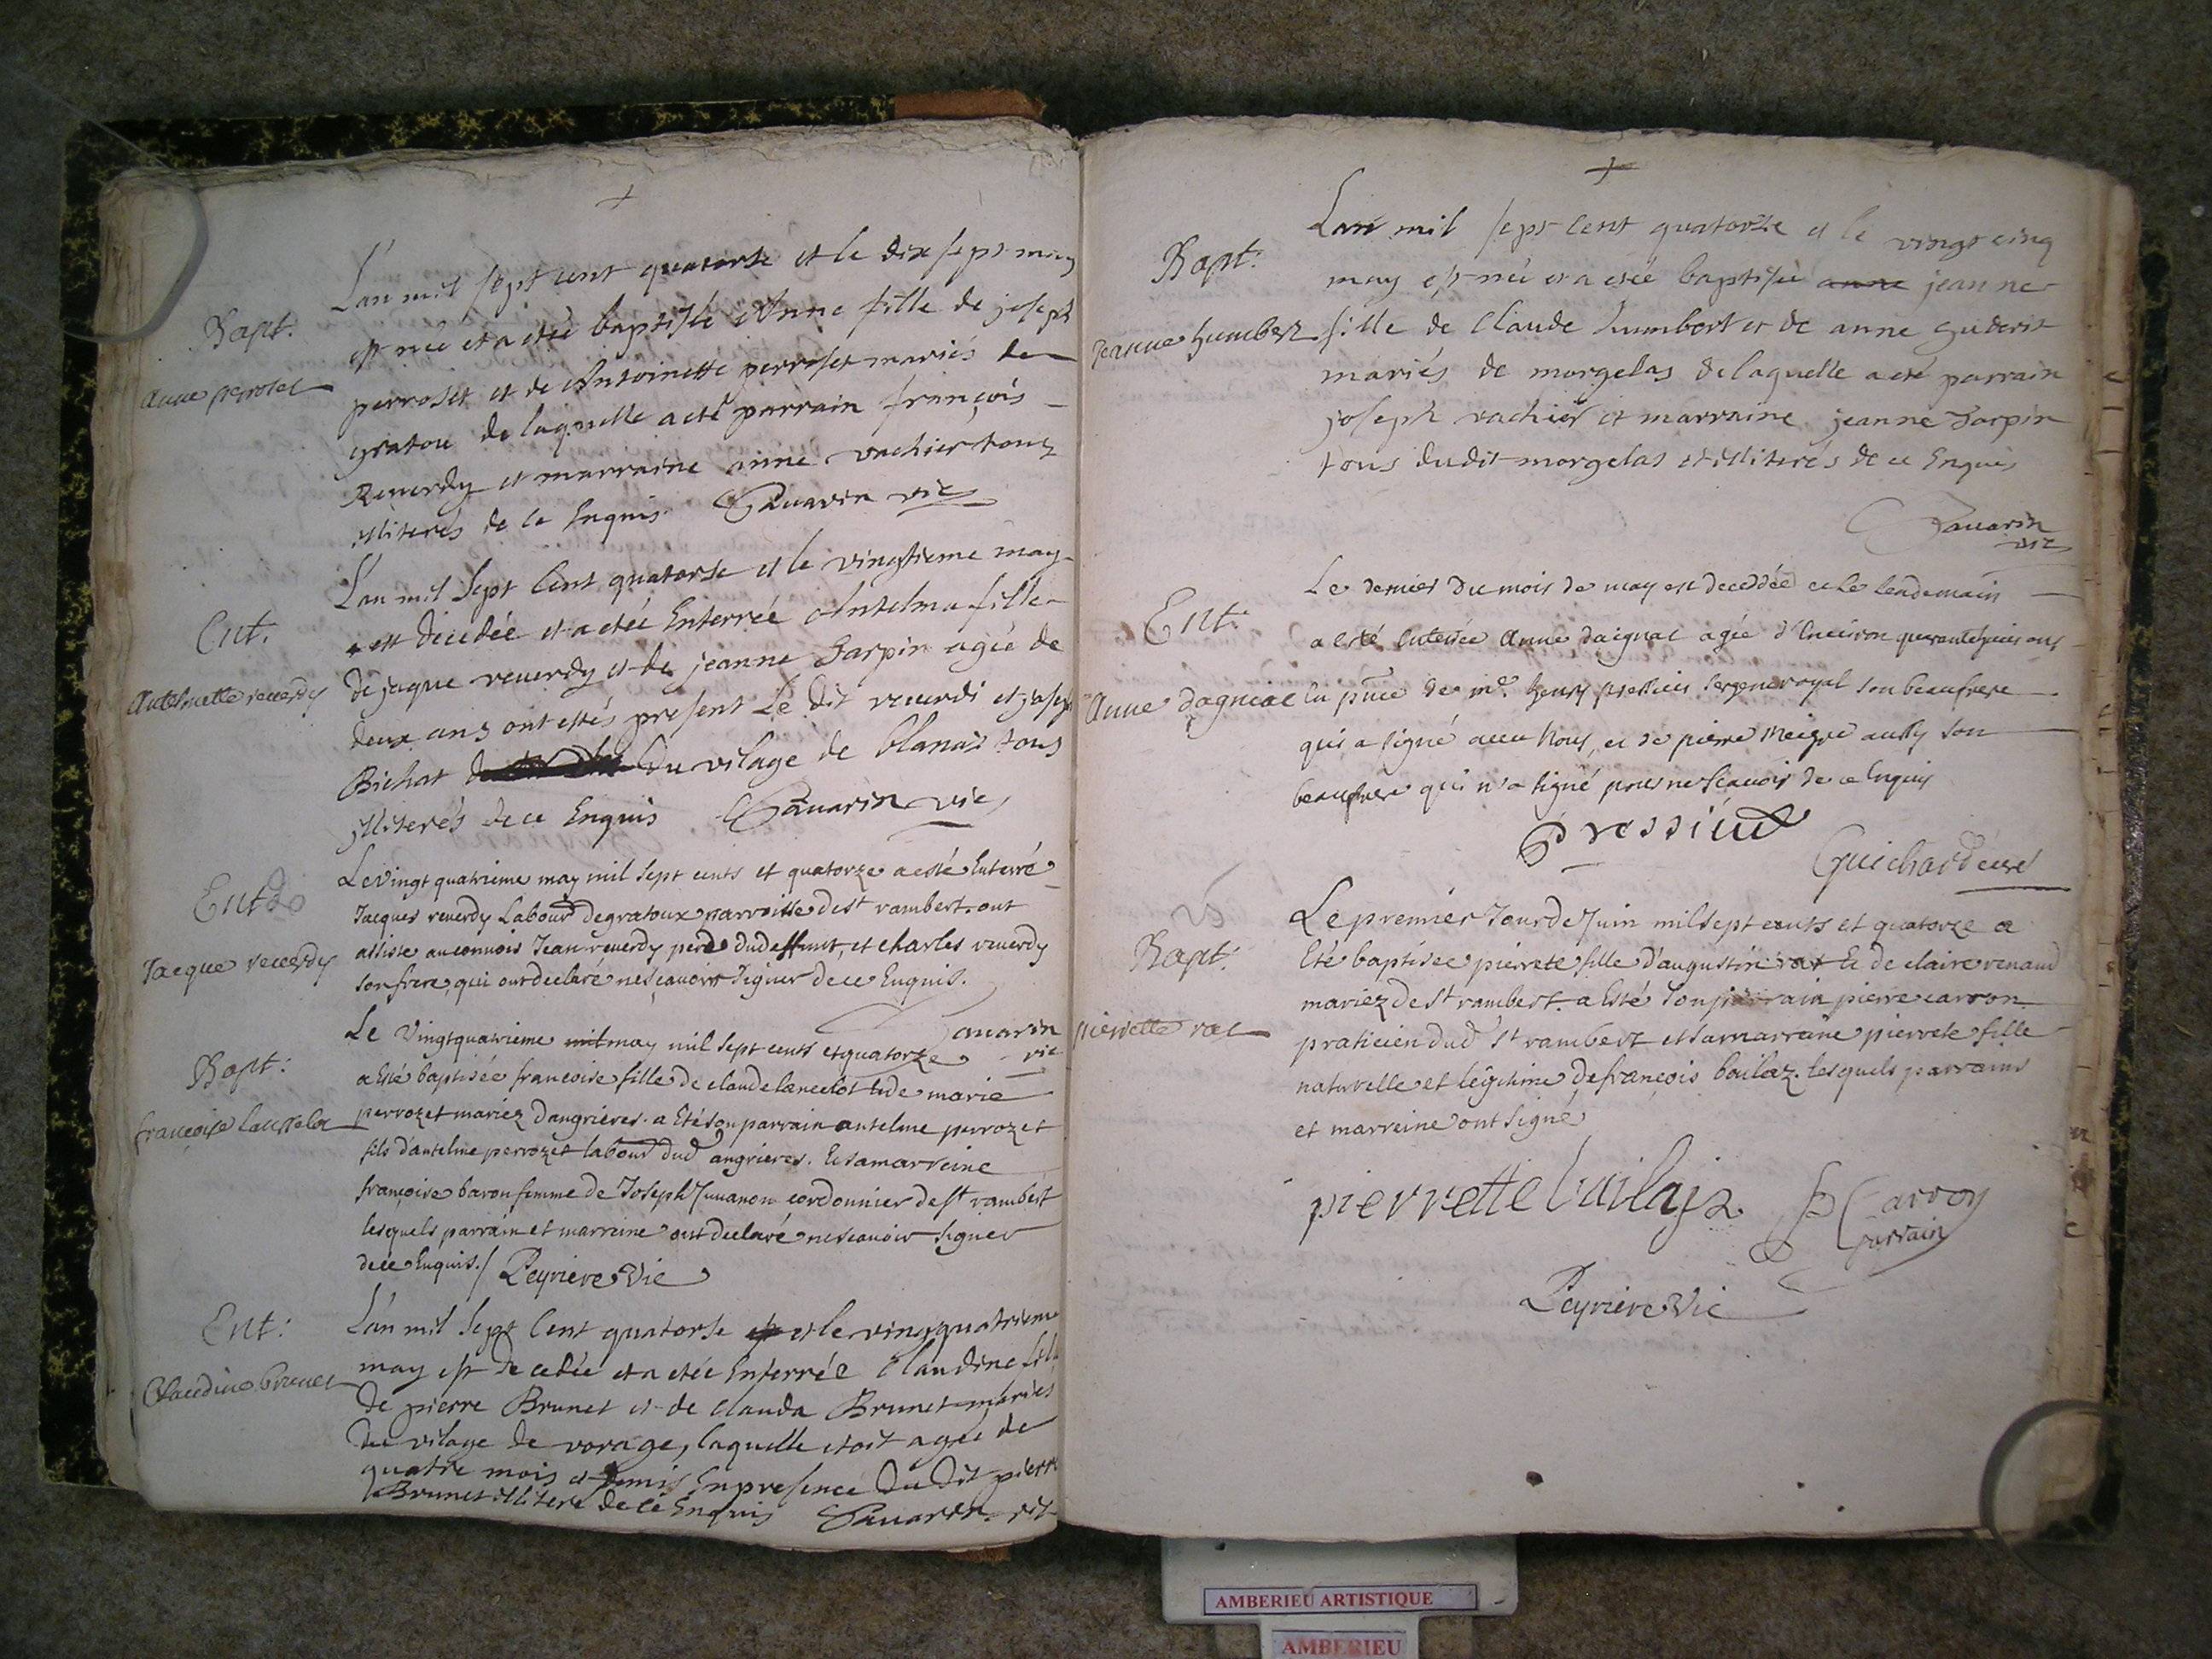 Bapt.
anne perroset
L'an mil sept cent quatorse et le dix sept may
est née et a etée baptisée Anne fille de joseph
perroset et de Antoinette perroset mariés de
gratou de laquelle a eté parrain françois
Reverdy et marraine anne vachier tous
illiterés de ce Enquis. Savarin vic
Ent.
Antelmette reverdy
L'an mil Sept Cent quatorse et le vingtieme may
est decedée et a etée Enterrée Antelma fille
de jaque reverdy et de jeanne Jarpin agée de
deux ans ont estés present Le dit reverdi et joseph
Bichat du vilage de blanas tous
jlliterés de ce Enquis Savarin vic
Ent
Jacque reverdy
Le vingt quatrieme may mil sept cents et quatorze a esté Enterré
Jacques reverdy Labour de gratoux parroisse de st rambert. ont
assisté au convois Jean reverdy pere dud deffunct, et charles reverdy
son frere, qui ont declaré ne sçavoir signer de ce Enquis.
Savarin
vic
Bapt:
francoise lansselot
Le Vingt quatrieme mil may mil sept cents et quatorze
a Esté baptisée francoise fille de claude lancelot et de marie
perrozet mariez d'angrieres. a Eté son parrain antelme perrozet
fils d'antelme perrozet labour dud angrieres. Et sa marreine
françoise baron femme de Joseph Juvanon cordonnier de st rambert
lesquels parrain et marreine ont declaré ne scavoir signer
de ce Enquis./ Peyriere Vic
Ent:
Claudine brunet
L'an mil Sept Cent quatorse est et le vingt quatrieme
may est decedée et a etée Enterrée Claudine fille
de pierre Brunet et de clauda Brunet mariés
du vilage de vorage, laquelle etoit agée de
quatre mois et demis En presence du dit pierre
Brunet illiteré de ce Enquis Savarin vic
Bapt.
jeanne humbert
Lan mil sept Cent quatorze et le vingt cinq
may est née et a eteé baptisée anne jeanne
fille de Claude humbert et de anne guderit
mariés de morgelas de laquelle a eté parrain
joseph vachier et marraine jeanne Jarpin
tous dudit morgelas et illiterés de ce Enquis
Savarin
vic
Ent.
Anne dagniac
Le dernier du mois de may est decedée et le lendemain
a esté Enterrée Anne daignac agée d'Environ quarante ans
En pnce de me. henry pressieu sergent royal son beaufrere
qui a signé avec Nous, et de pierre Meigre aussy son
beaufrere qui n'a signé pour ne scavoir de ce Enquis
Pressieu
Guichard curé
Bapt.
pierrette rat
Le premier Jour de Juin mil sept cents et quatorze a
Eté baptisée pierrete fille d'augustin rat Et de claire renaud
mariez de st rambert. a Esté son parrain pierre carron
praticien dud st rambert et sa marraine pierrete fille
naturelle et légitime de françois boilaz. lesquels parrains
et marreine ont signé
pierrette
P Carron
parrain
Peyriere Vic
AMBERIEU ARTISTIQUE
AMBERIEU